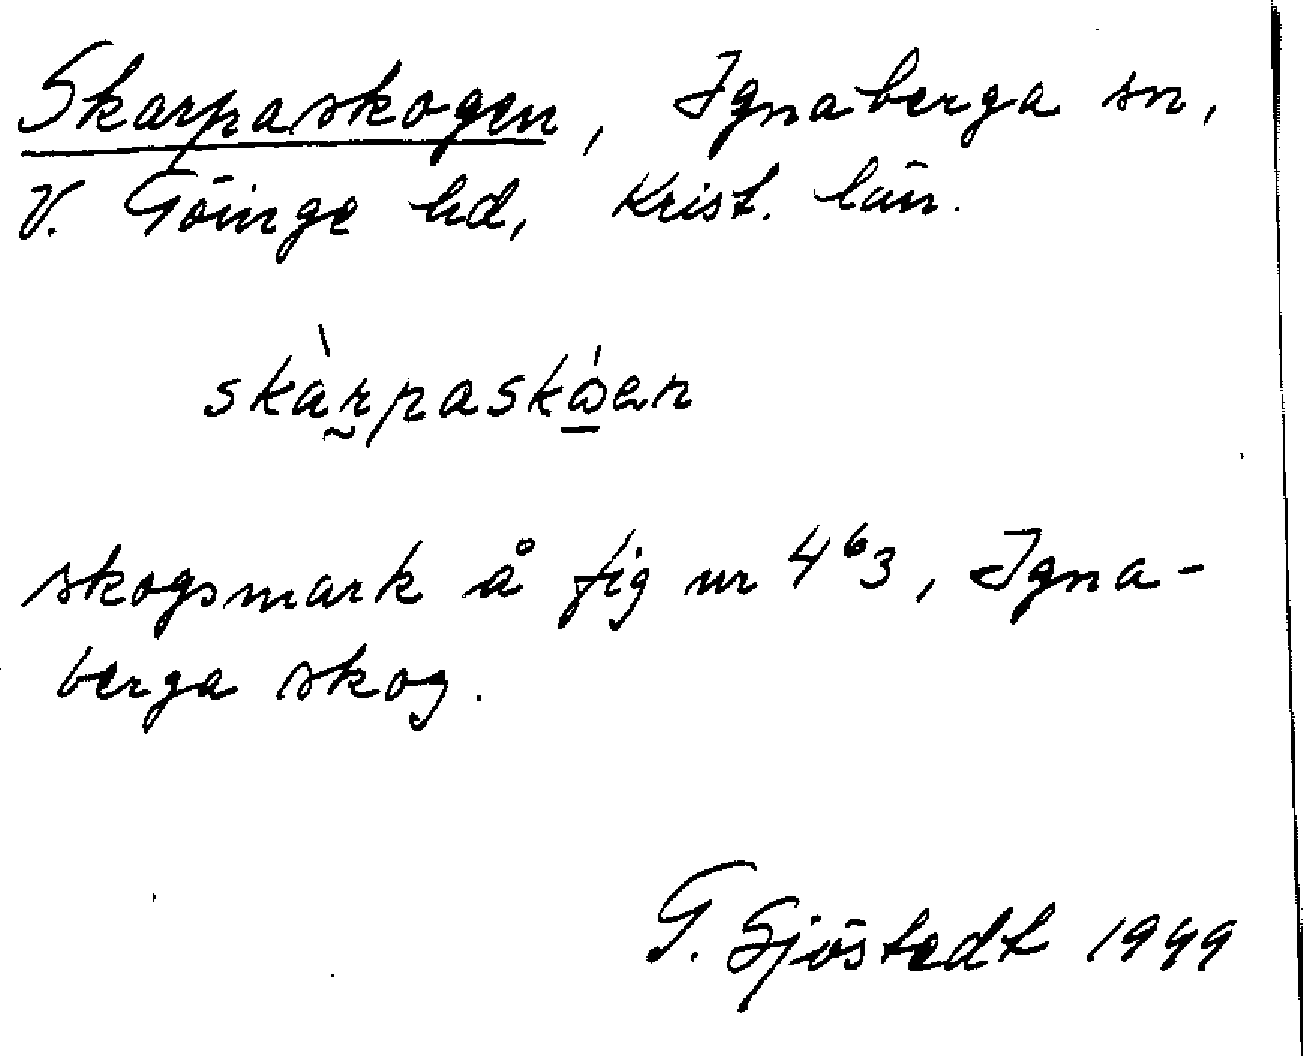 Skarpaskogen, Ignaberga sn,
V. Göinge hd, Krist. län.
skàr̰paskó̲en
skogsmark å fig nr 4⁶3, Igna-
berga skog.
G. Sjöstedt 1949